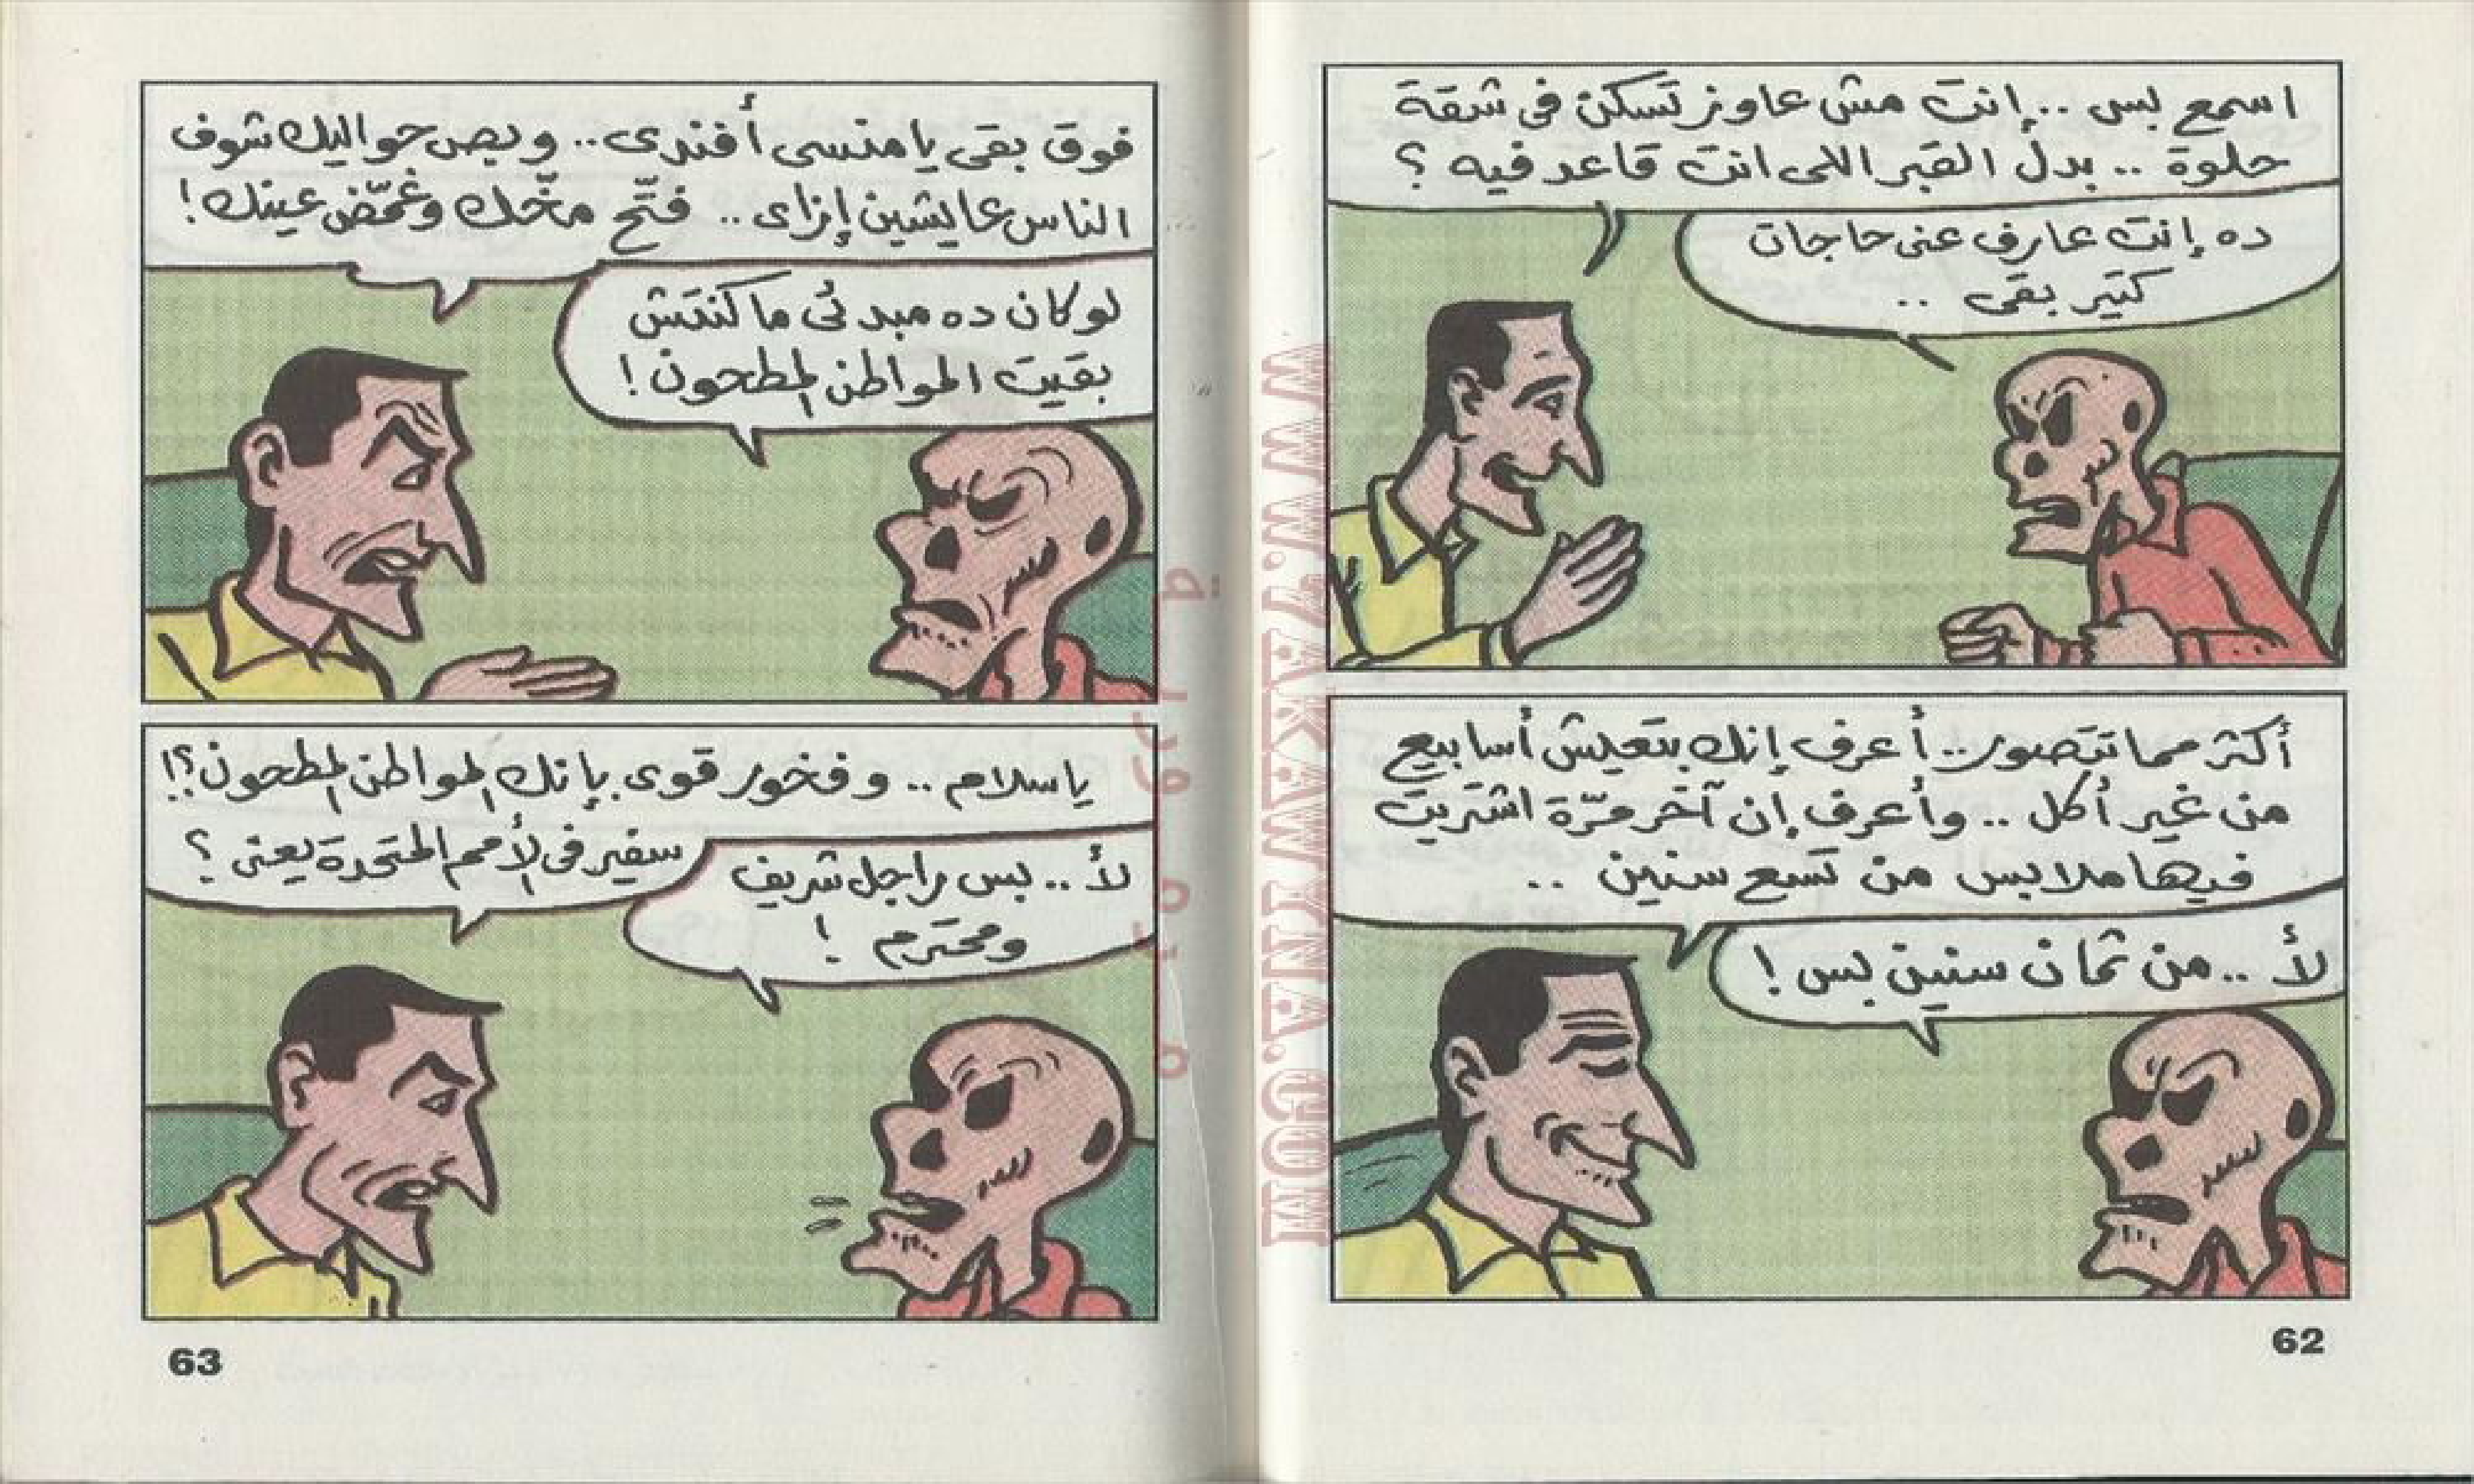 اسمع بس .. إنت مش عاوز تسكن فى شقة
حلوة .. بدل القبر اللى انت قاعد فيه ؟
ده إنت عارف عنى حاجات
كتير بقى ..
أكثر مما تتصور .. أعرف إنك بتعيش أسابيع
من غير أكل .. وأعرف إن آخر مرّة اشتريت
فيها ملابس من تسع سنين ..
لأ .. من ثمان سنين بس !
62
فوق بقى يا منسى أفندى .. وبص حواليك شوف
الناس عايشين إزاى .. فتّح مخّك وغمّض عينك !
لو كان ده مبدئى ما كنتش
بقيت المواطن المطحون !
ياسلام .. وفخور قوى بإنك المواطن المطحون ؟!
سفير فى الأمم المتحدة يعنى ؟
لأ .. بس راجل شريف
ومحترم !
63